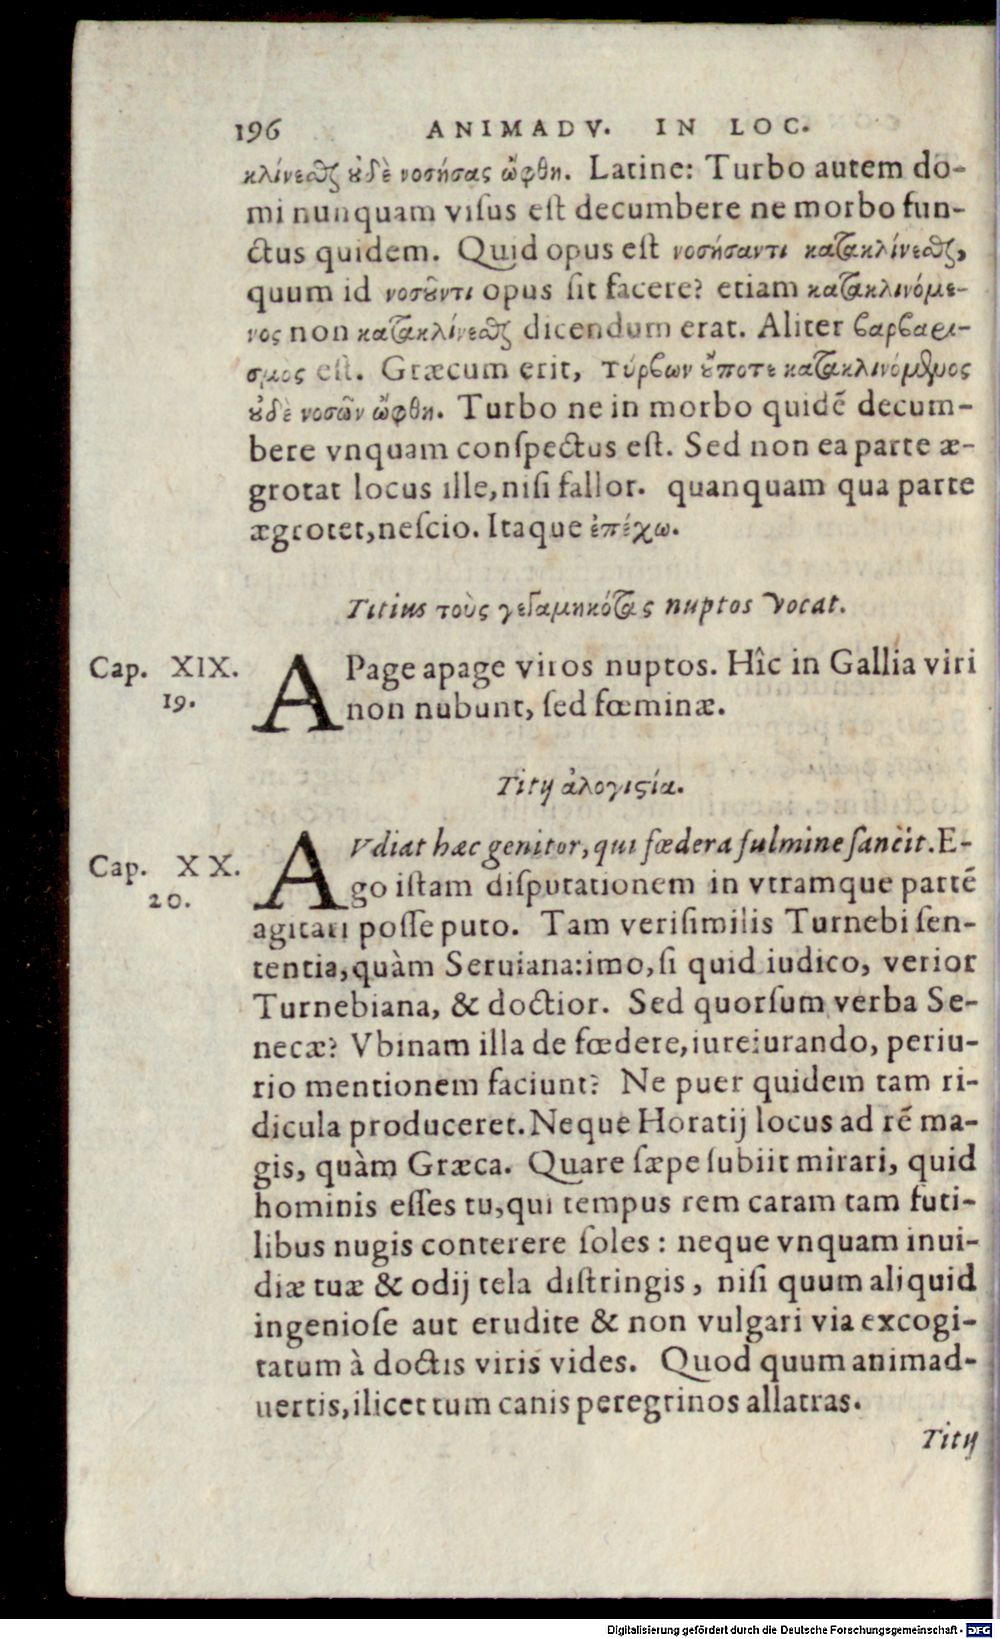 196 ANIMADV. IN LOC.
κλίνεσθαι ουδὲ νοσήσας ὤφθη. Latine: Turbo autem do-
mi nunquam visus est decumbere ne morbo fun-
ctus quidem. Quid opus est νοσήσαντι κατακλίνεσθαι,
quum id νοσοῦντι opus sit facere? etiam κατακλινόμε-
νος non κατακλίνεσθαι dicendum erat. Aliter βαρβαρι-
σμος est. Græcum erit, Τύρβων οὔποτε κατακλινόμενος
ουδὲ νοσῶν ὤφθη. Turbo ne in morbo quidẽ decum-
bere vnquam conspectus est. Sed non ea parte æ-
grotat locus ille, nisi fallor. quanquam qua parte
ægrotet, nescio. Itaque ἐπέχω.
Titius τοὺς γεγαμηκότας nuptos vocat.
Cap. XIX.
19.
APage apage viros nuptos. Hîc in Gallia viri
non nubunt, sed fœminæ.
Titij ἀλογιστία.
Cap. XX.
20.
AVdiat hæc genitor, qui fœdera fulmine sancit. E-
go istam disputationem in vtramque partẽ
agitari posse puto. Tam verisimilis Turnebi sen-
tentia, quàm Seruiana: imo, si quid iudico, verior
Turnebiana, & doctior. Sed quorsum verba Se-
necæ? Vbinam illa de fœdere, iureiurando, periu-
rio mentionem faciunt? Ne puer quidem tam ri-
dicula produceret. Neque Horatij locus ad rẽ ma-
gis, quàm Græca. Quare sæpe subiit mirari, quid
hominis esses tu, qui tempus rem caram tam futi-
libus nugis conterere soles: neque vnquam inui-
diæ tuæ & odij tela distringis, nisi quum aliquid
ingeniose aut erudite & non vulgari via excogi-
tatum à doctis viris vides. Quod quum animad-
uertis, ilicet tum canis peregrinos allatras.
Titij
Digitalisierung gefördert durch die Deutsche Forschungsgemeinschaft - DFG